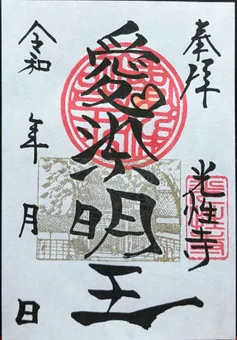 奉拝
光性寺
愛染明王
令和 年 月 日